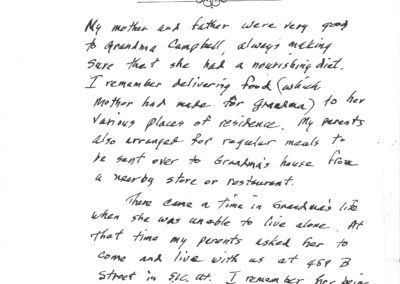 My mother and father were very good
to Grandma Campbell, always making
sure that she had a nourishing diet.
I remember delivering food (which
Mother had made for Grandma) to her
various places of residence. My parents
also arranged for regular meals to
be sent over to Grandma's house from
a nearby store or restaurant.
There came a time in Grandma's life
when she was unable to live alone. At
that time my parents asked her to
come and live with us at 459 B
Street in S.L.C. Ut. I remember her being